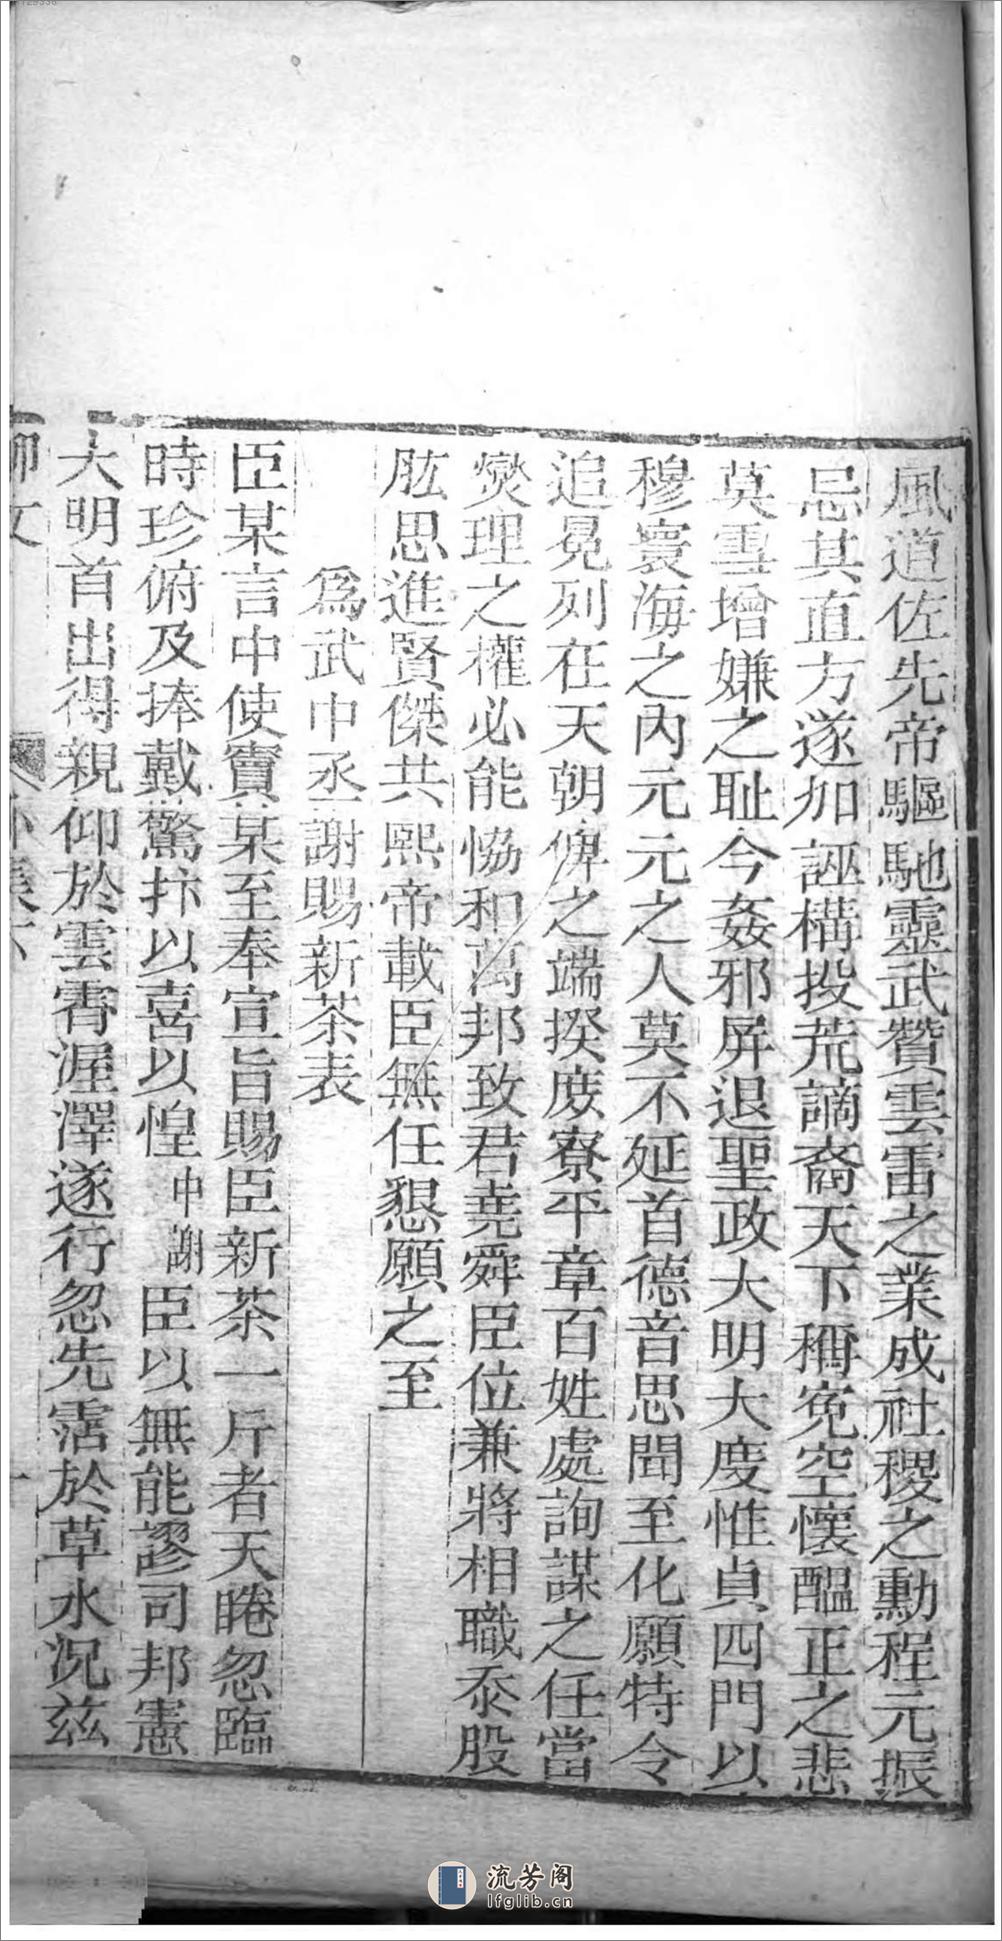 風道佐先帝驅馳靈武贊雲雷之業成社稷之勳程元振
忌其直方遂加誣構投荒謫裔天下稱寃空懷醞正之悲
莫雪增嫌之耻今姦邪屏退聖政大明大度惟貞四門以
穆寰海之內元元之人莫不延首德音思聞至化願特令
追晃列在天朝俾之端揆庶寮平章百姓處詢謀之任當
爕理之權必能恊和萬邦致君堯舜臣位兼將相職忝股
肱思進賢傑共熙帝載臣無任懇願之至
為武中丞謝賜新茶表
臣某言中使竇某至奉宣旨賜臣新茶一斤者天睠忽臨
時珍俯及捧戴驚抃以喜以惶中謝臣以無能謬司邦憲
大明首出得親仰於雲霄渥澤遂行忽先霑於草木況茲
柳文 外集下
流芳阁
lfglib.cn